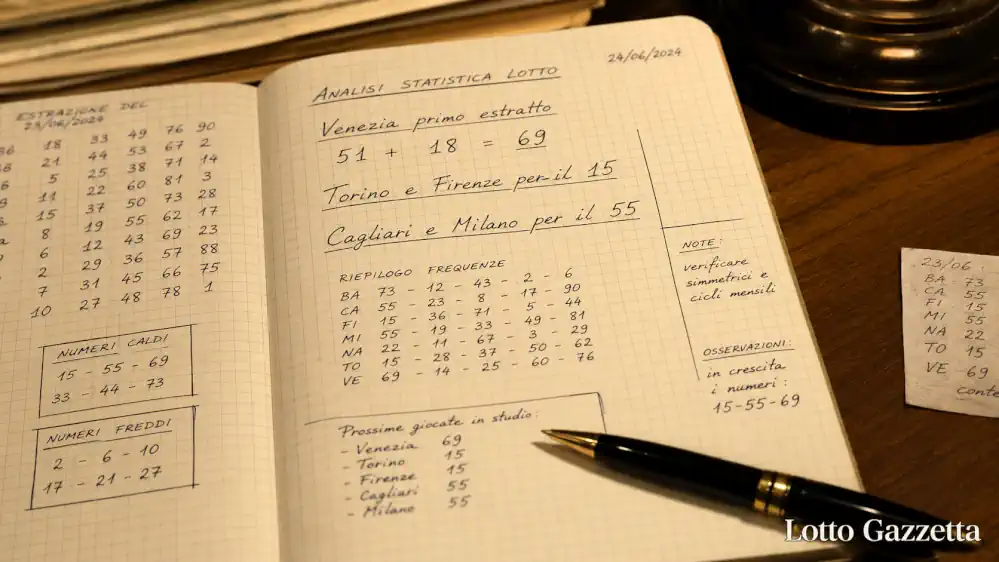 ESTRAZIONE DEL
23/06/2024
18 33 49 76 90
21 44 53 67 2
5 25 38 71 14
11 22 60 81 3
15 37 50 73 28
8 19 55 62 17
6 12 43 69 23
2 29 36 57 88
7 31 45 66 75
10 27 48 78 1
NUMERI CALDI
15 - 55 - 69
33 - 44 - 73
NUMERI FREDDI
2 - 6 - 10
17 - 21 - 27
24/06/2024
ANALISI STATISTICA LOTTO
Venezia primo estratto
51 + 18 = 69
Torino e Firenze per il 15
Cagliari e Milano per il 55
RIEPILOGO FREQUENZE
BA 73 - 12 - 43 - 2 - 6
CA 55 - 23 - 8 - 17 - 90
FI 15 - 36 - 71 - 5 - 44
MI 55 - 19 - 33 - 49 - 81
NA 22 - 11 - 67 - 3 - 29
TO 15 - 28 - 37 - 50 - 62
VE 69 - 14 - 25 - 60 - 76
Prossime giocate in studio:
- Venezia 69
- Torino 15
- Firenze 15
- Cagliari 55
- Milano 55
NOTE:
verificare
simmetrici e
cicli mensili
OSSERVAZIONI:
in crescita
i numeri:
15-55-69
23/06:
BA 73
CA 55
FI 15
MI 55
NA 22
TO 15
VE 69
Lotto Gazzetta